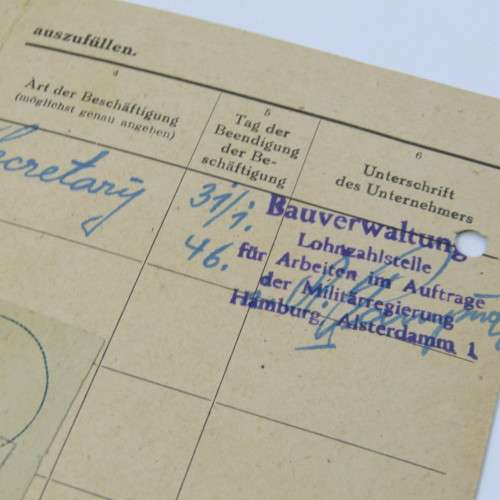 auszufüllen.
4
Art der Beschäftigung
(möglichst genau angeben)
5
Tag der
Beendigung
der Be-
schäftigung
6
Unterschrift
des Unternehmers
Secretary
31/1.
46.
Bauverwaltung
Lohnzahlstelle
für Arbeiten im Auftrage
der Militärregierung
Hamburg, Alsterdamm 1